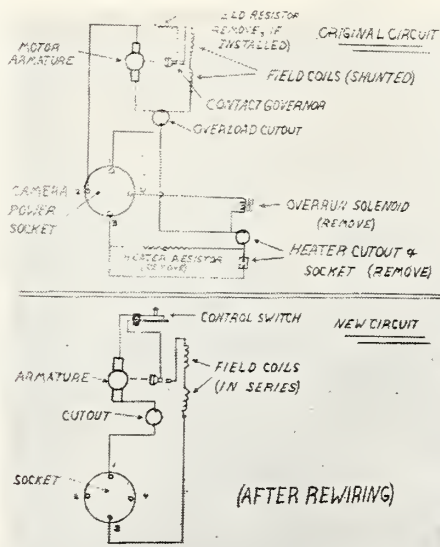 ELD RESISTOR
REMOVE, IF
INSTALLED)
ORIGINAL CIRCUIT
MOTOR
ARMATURE
FIELD COILS (SHUNTED)
CONTACT GOVERNOR
OVERLOAD CUTOUT
CAMERA
POWER
SOCKET
3
OVERRUN SOLENOID
(REMOVE)
HEATER RESISTOR
(REMOVE)
HEATER CUTOUT &
SOCKET (REMOVE)
CONTROL SWITCH
NEW CIRCUIT
ARMATURE
FIELD COILS
(IN SERIES)
CUTOUT
SOCKET
3
(AFTER REWIRING)